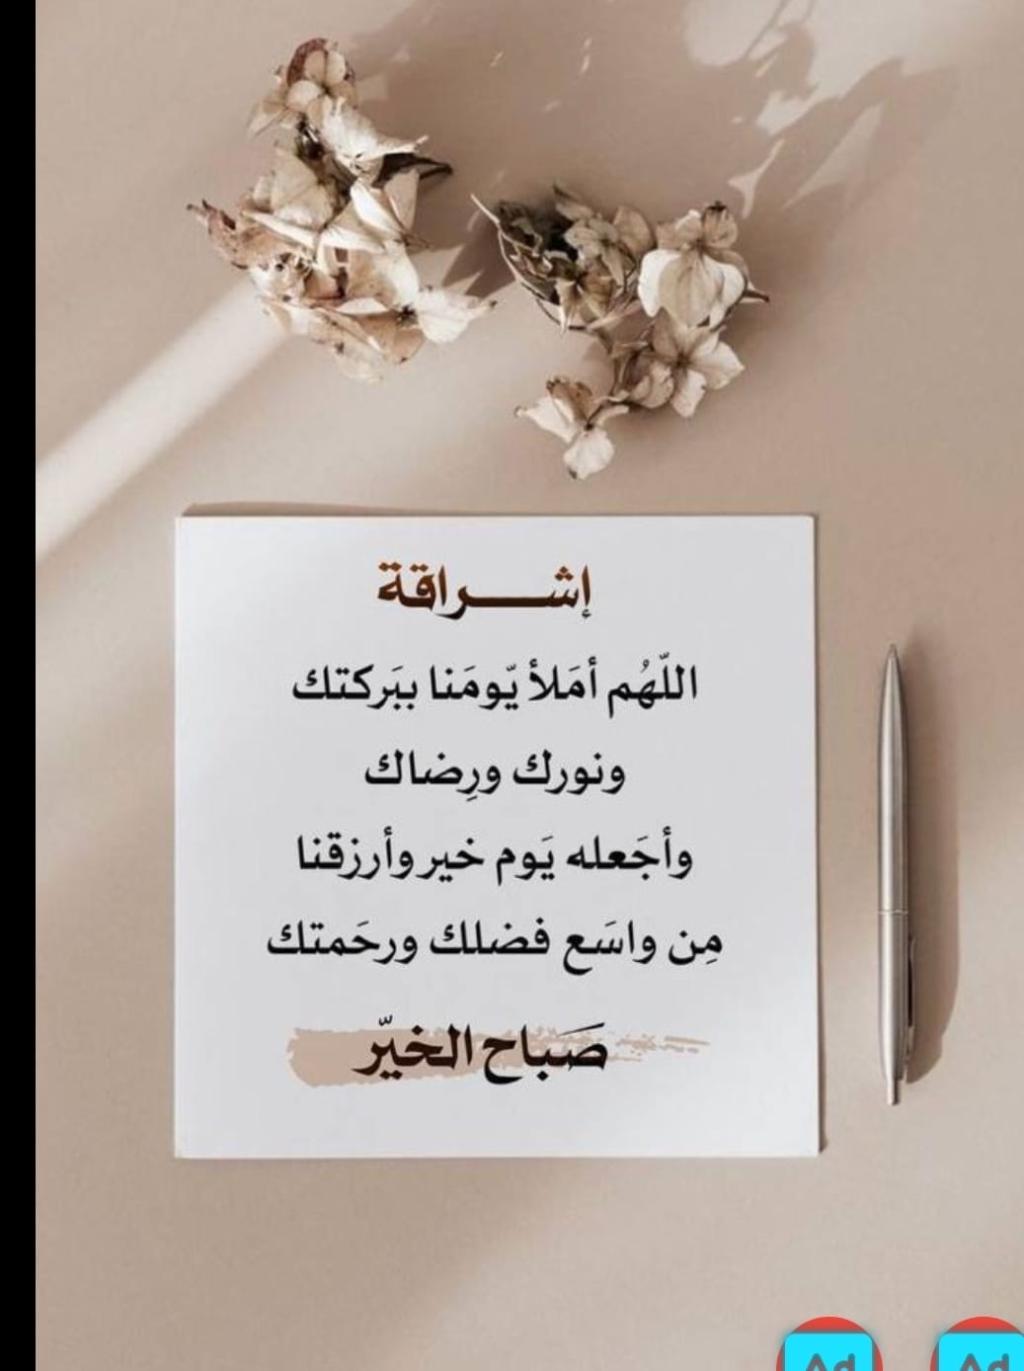 إشـــراقة
اللّهُم أمَلأ يّومَنا ببَركتك
ونورك ورِضاك
وأجَعله يَوم خير وأرزقنا
مِن واسَع فضلك ورحَمتك
صَباح الخيّر
Ad Ad